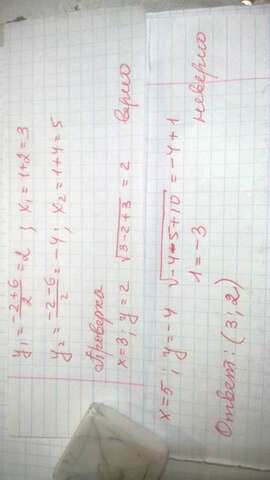 y₁ = (-2+6)/2 = 2 ; x₁ = 1+2 = 3
y₂ = (-2-6)/2 = -4 ; x₂ = 1+4 = 5
Проверка
x=3; y=2 √(3-2+3) = 2 верно
x=5; y=-4 √(-4-5+10) = -4+1
1 = -3 неверно
Ответ: (3; 2)